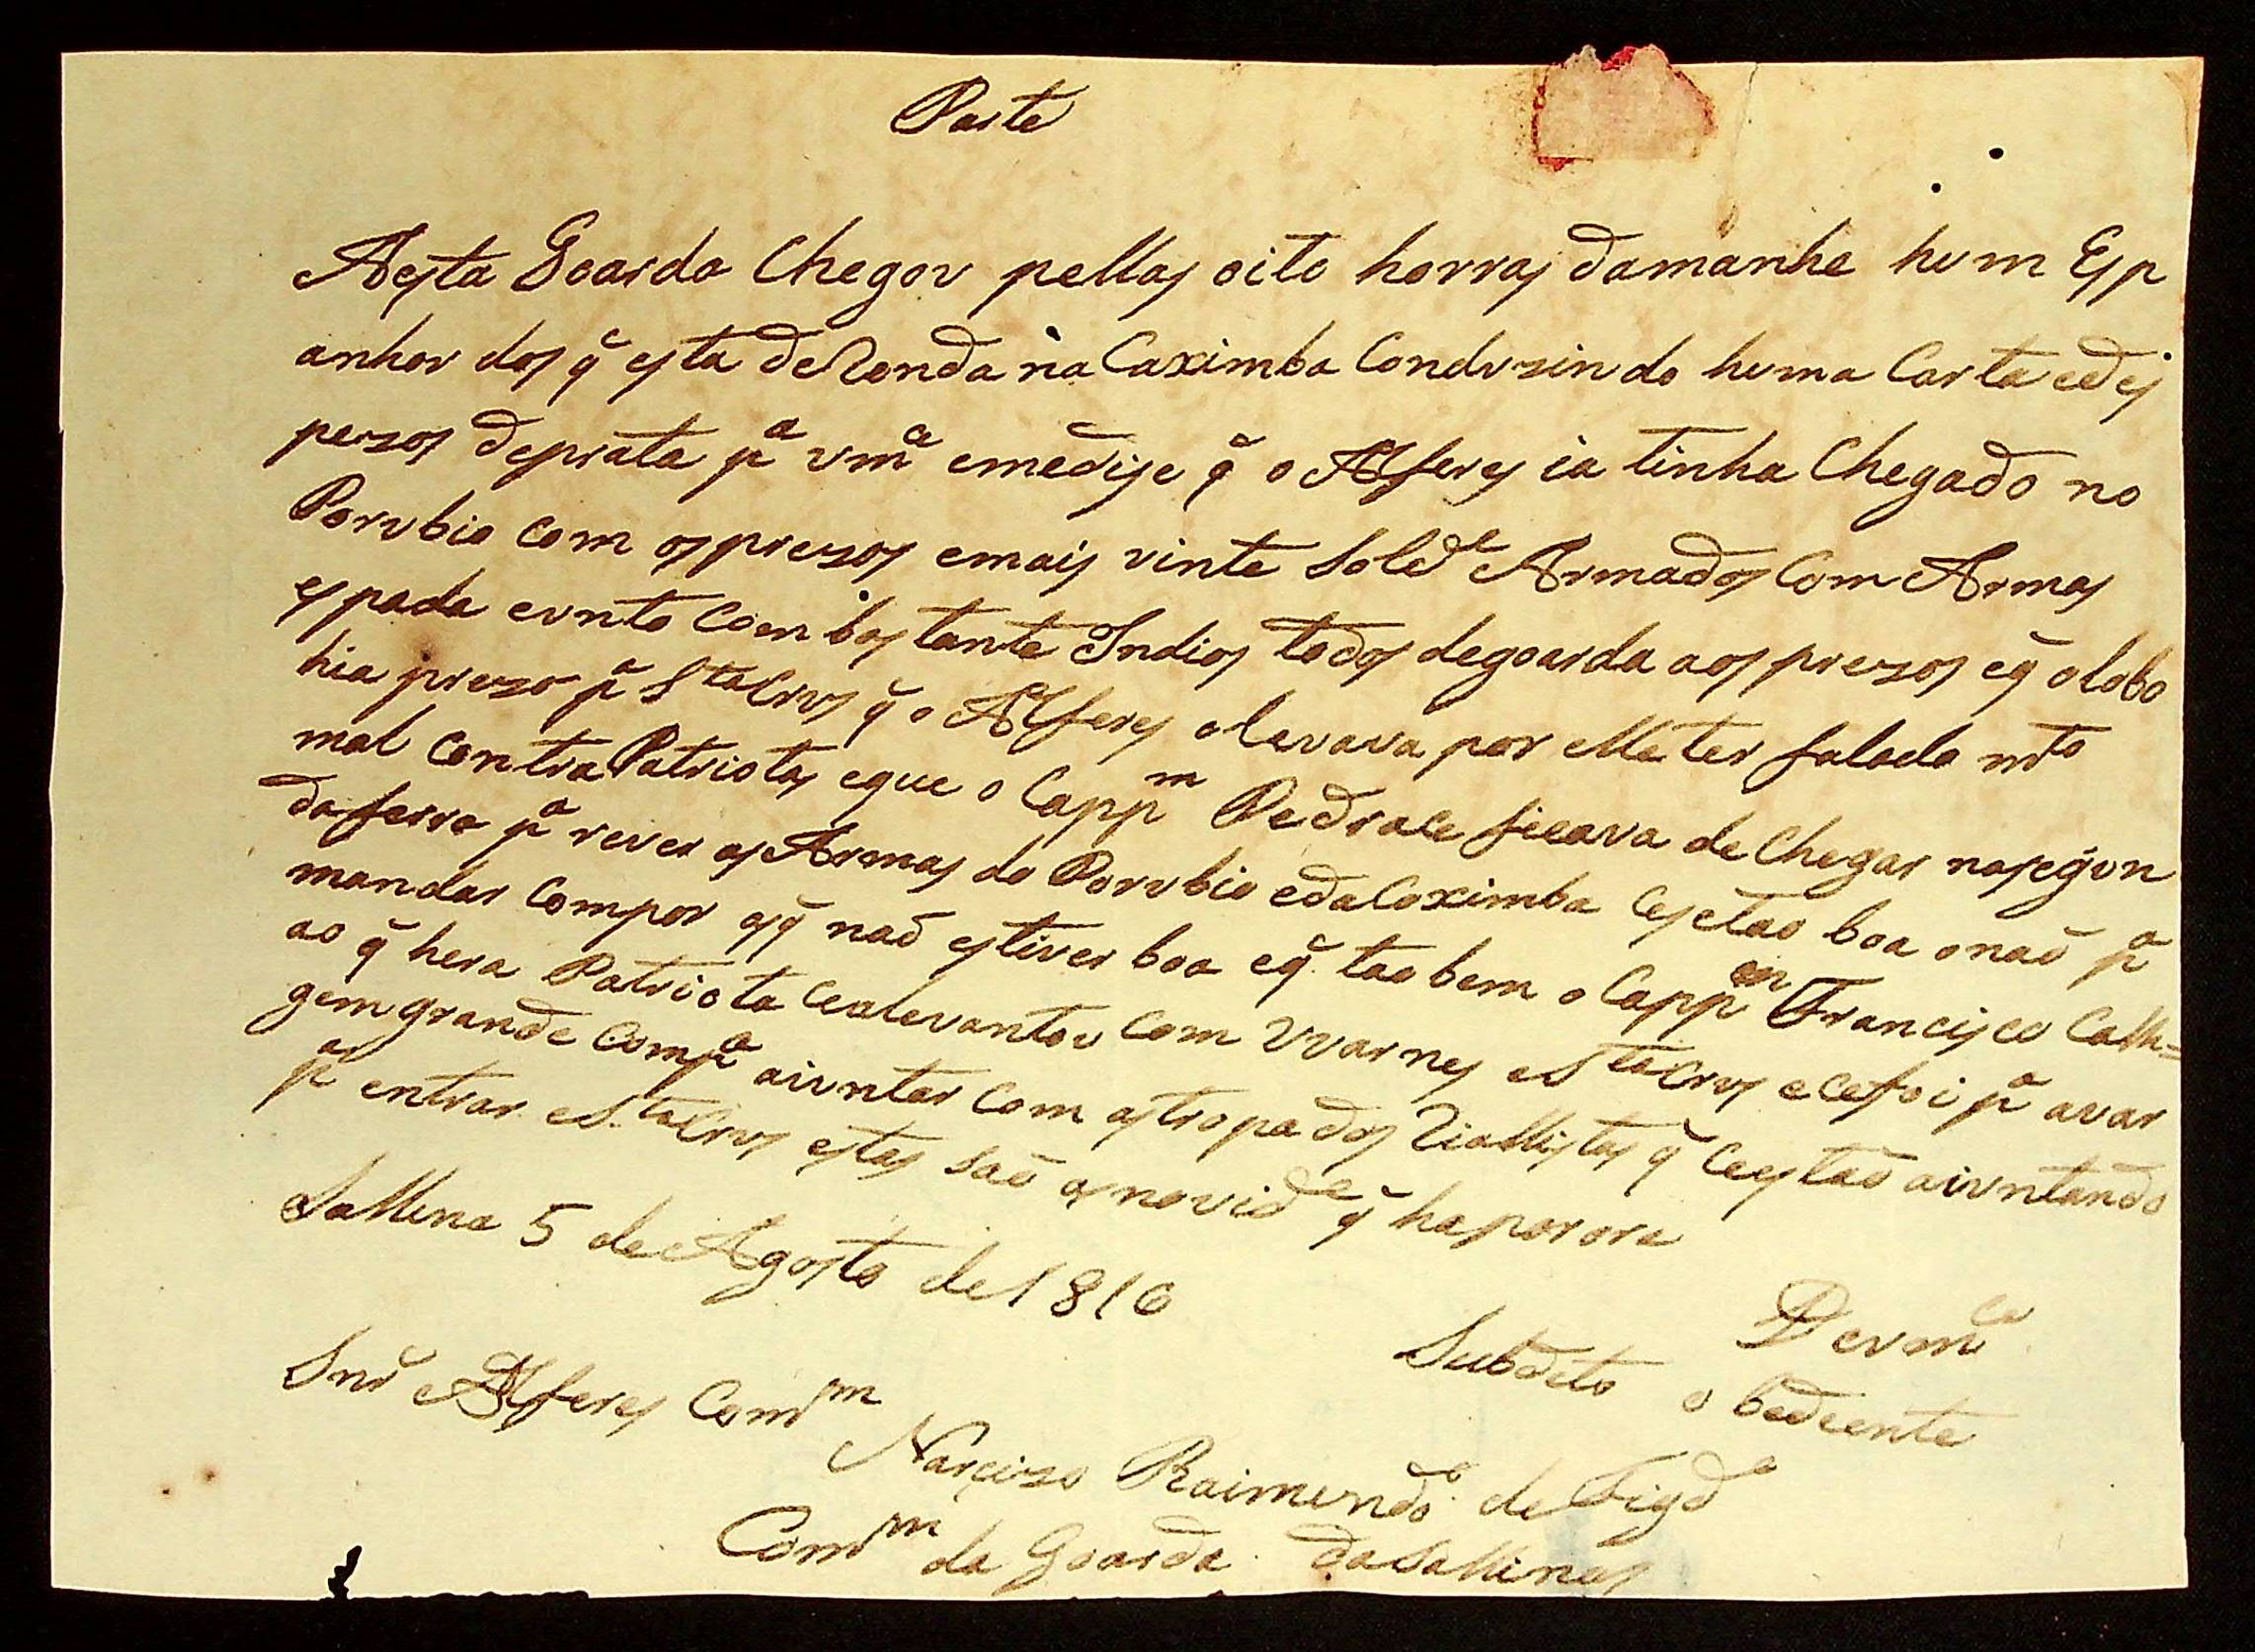 Parte
Aesta Goarda Chegov pellas oito horras damanhe hum Esp
anhor dos q̃ esta deRonda na Caximba Condvzindo huma Carta edes
pezos deprata pª vmce emedise q̃ o Alferes ia tinha Chegado no
Porvbio com os prezos emais vinte Soldᵉ Armados Com Armas
espada evnto Com bastante Indios todos degoarda aos prezos eq̃ olobo
hia prezo pª Sta Crvs q̃ o Alferes olevava por elle ter falado mto
mal Contra Patriotas eque o Cappm Pedrace ficava de Chegar nasegvn
daferra pª rever as Armas do Porvbio edaCaximba Cestaõ boa onaõ pª
mandar Compor asq̃ naõ estiver boa eq̃ taobem o Cappm Francisco Calh=
ao q̃ hera Patriota Cealevantov Com Vvarnes eSta Crvs eCefoi pª avar
gemgrande Compª aivntar Com astropa dos Rialistas q̃ Cestaõ aivntando
pª entrar eSta Crvs estas saõ as novidᵉ q̃ haporora
Sallina 5 de Agosto de 1816
Devmce
Subdito obediente
Snr̃ Alferes Comm
Narcizo Raimundo de Figdo
Comm da Goarda daSallinas